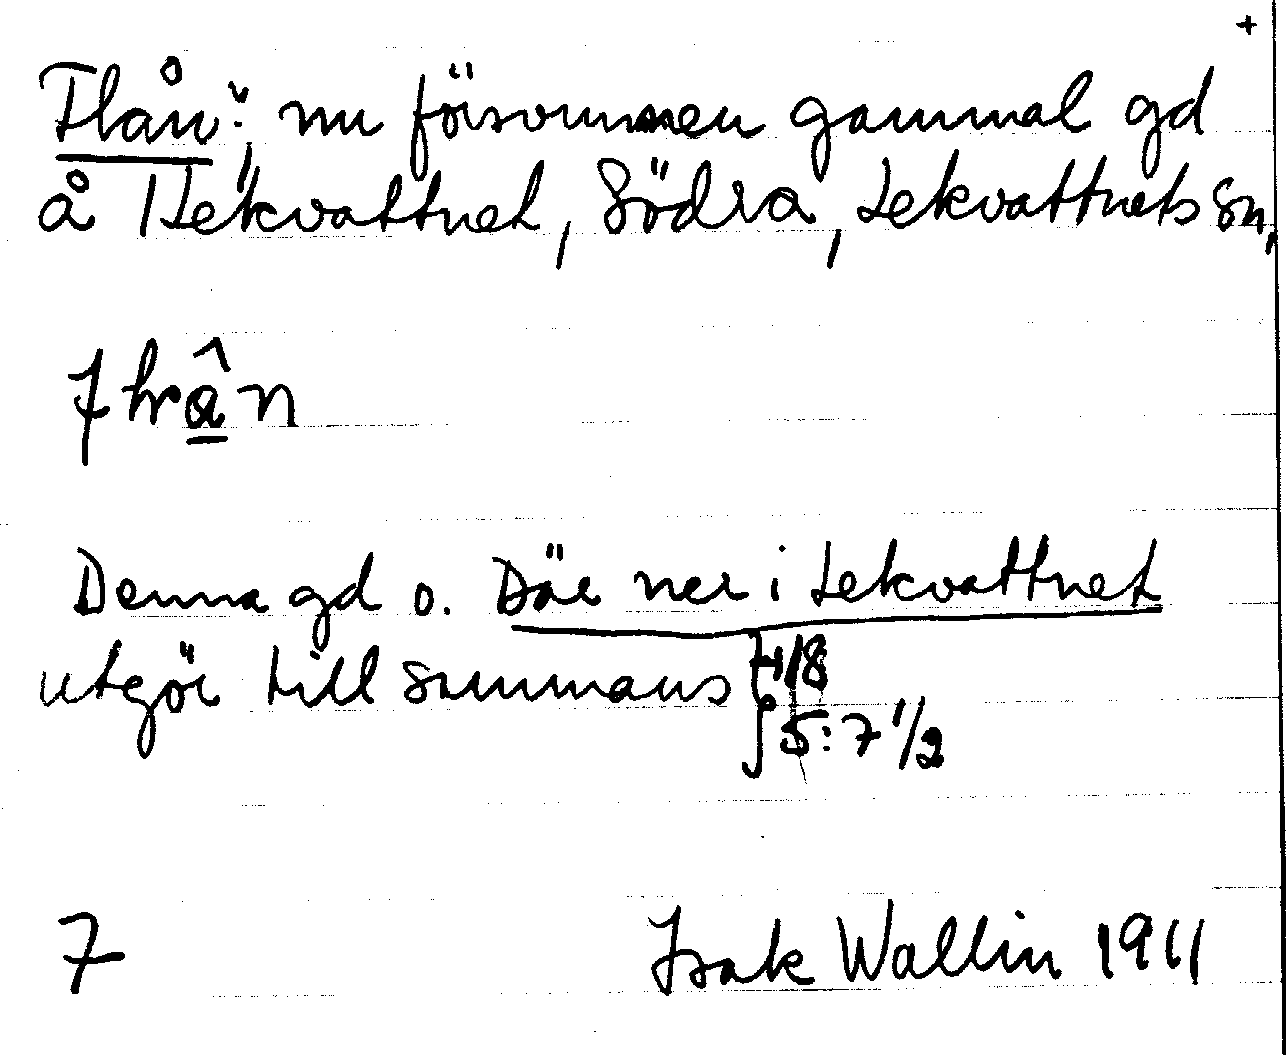 +
Flån": nu försvunnen gammal gd
å 1 Lekvattnet, Södra, Lekvattnets sn,
Denna gd o. Där ner i Lekvattnet
utgör tillsammans 1/8
5:7 1/2
7 Isak Wallin 1911